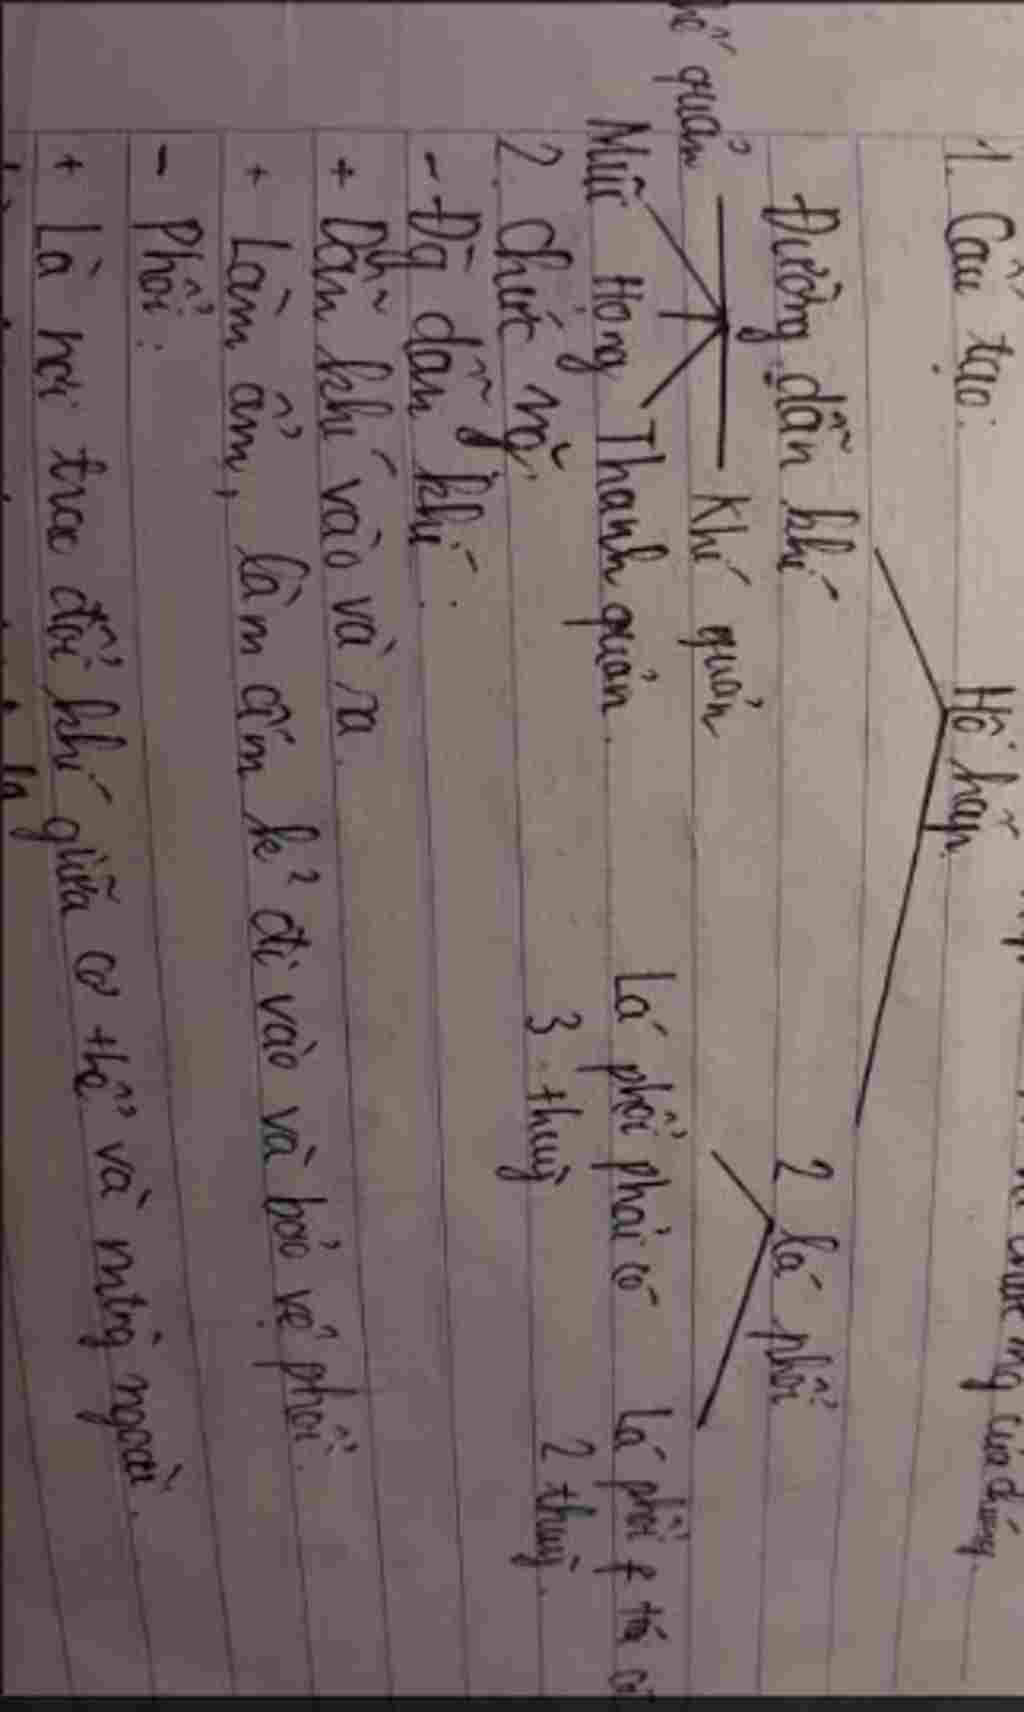 của chúng.
1. Cấu tạo:
Hô hấp.
Đường dẫn khí
2 lá phổi
quản
Khí quản
Mũi Họng Thanh quản.
Lá phổi phải có
3 thuỳ
Lá phổi trái có
2 thuỳ.
2. Chức nă
- Đg dẫn khí:
+ Dẫn khí vào và ra.
+ Làm ẩm, làm ấm k² đi vào và bảo vệ phổi.
- Phổi:
+ Là nơi trao đổi khí giữa cơ thể và mtrg ngoài.